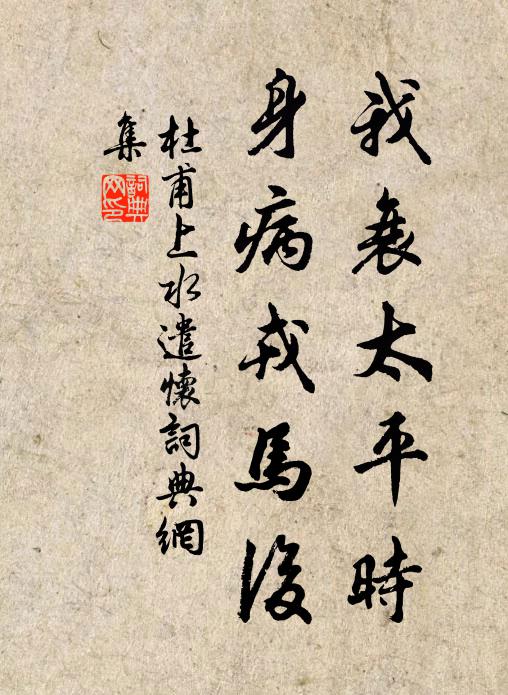 我衰太平時
身病戎馬後
杜甫上水遣懷詞典網
集
詞典網印